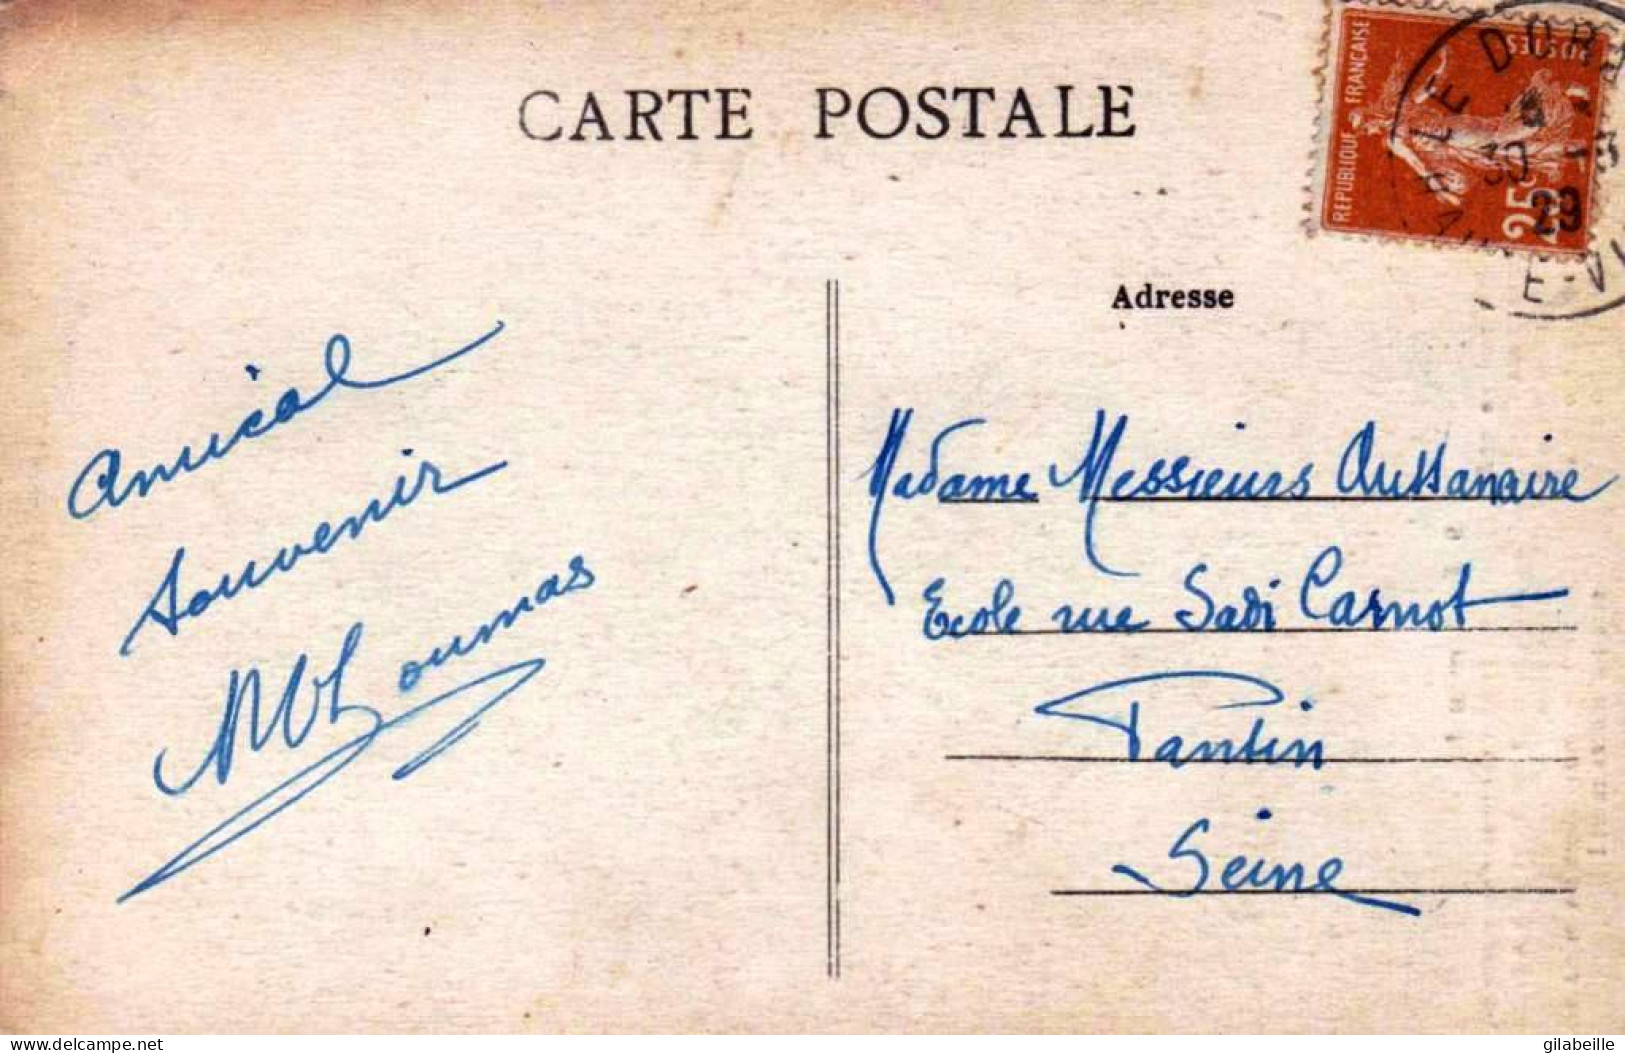 CARTE POSTALE
REPUBLIQUE FRANÇAISE
POSTES
25c
30
29
Adresse
Amical
Souvenir
Madame Messieurs Aussanaire
Ecole rue Sadi Carnot
Pantin
Seine
www.delcampe.net
gilabeille